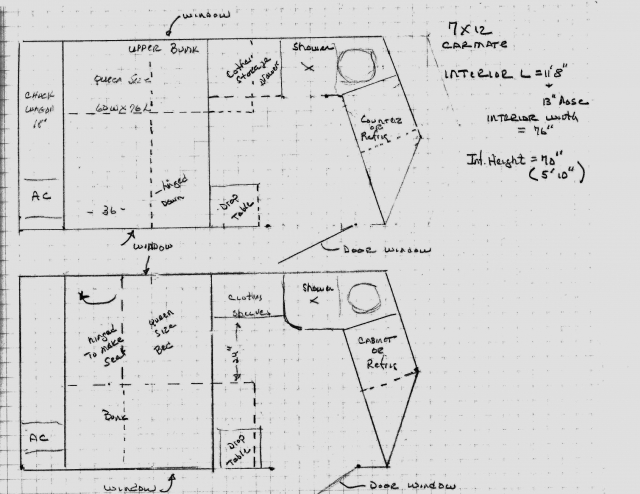 WINDOW
7X12
CARMATE
INTERIOR L = 11'8"
13" Nose
INTERIOR WIDTH
= 76"
Int. Height = 70"
(5'10")
UPPER BUNK
QUEEN SIZE
60W X 76L
Clothes
Storage
Shower
CHUCK
WAGON
18"
COUNTER
OR
Refrig
AC
- 36 -
hinged
Down
Drop
Table
WINDOW
DOOR WINDOW
hinged
To Make
Seat
Queen
Size
Bed
Clothes
Shelves
Shower
24"
CABINET
OR
Refrig
Bunk
AC
Drop
Table
WINDOW
DOOR WINDOW